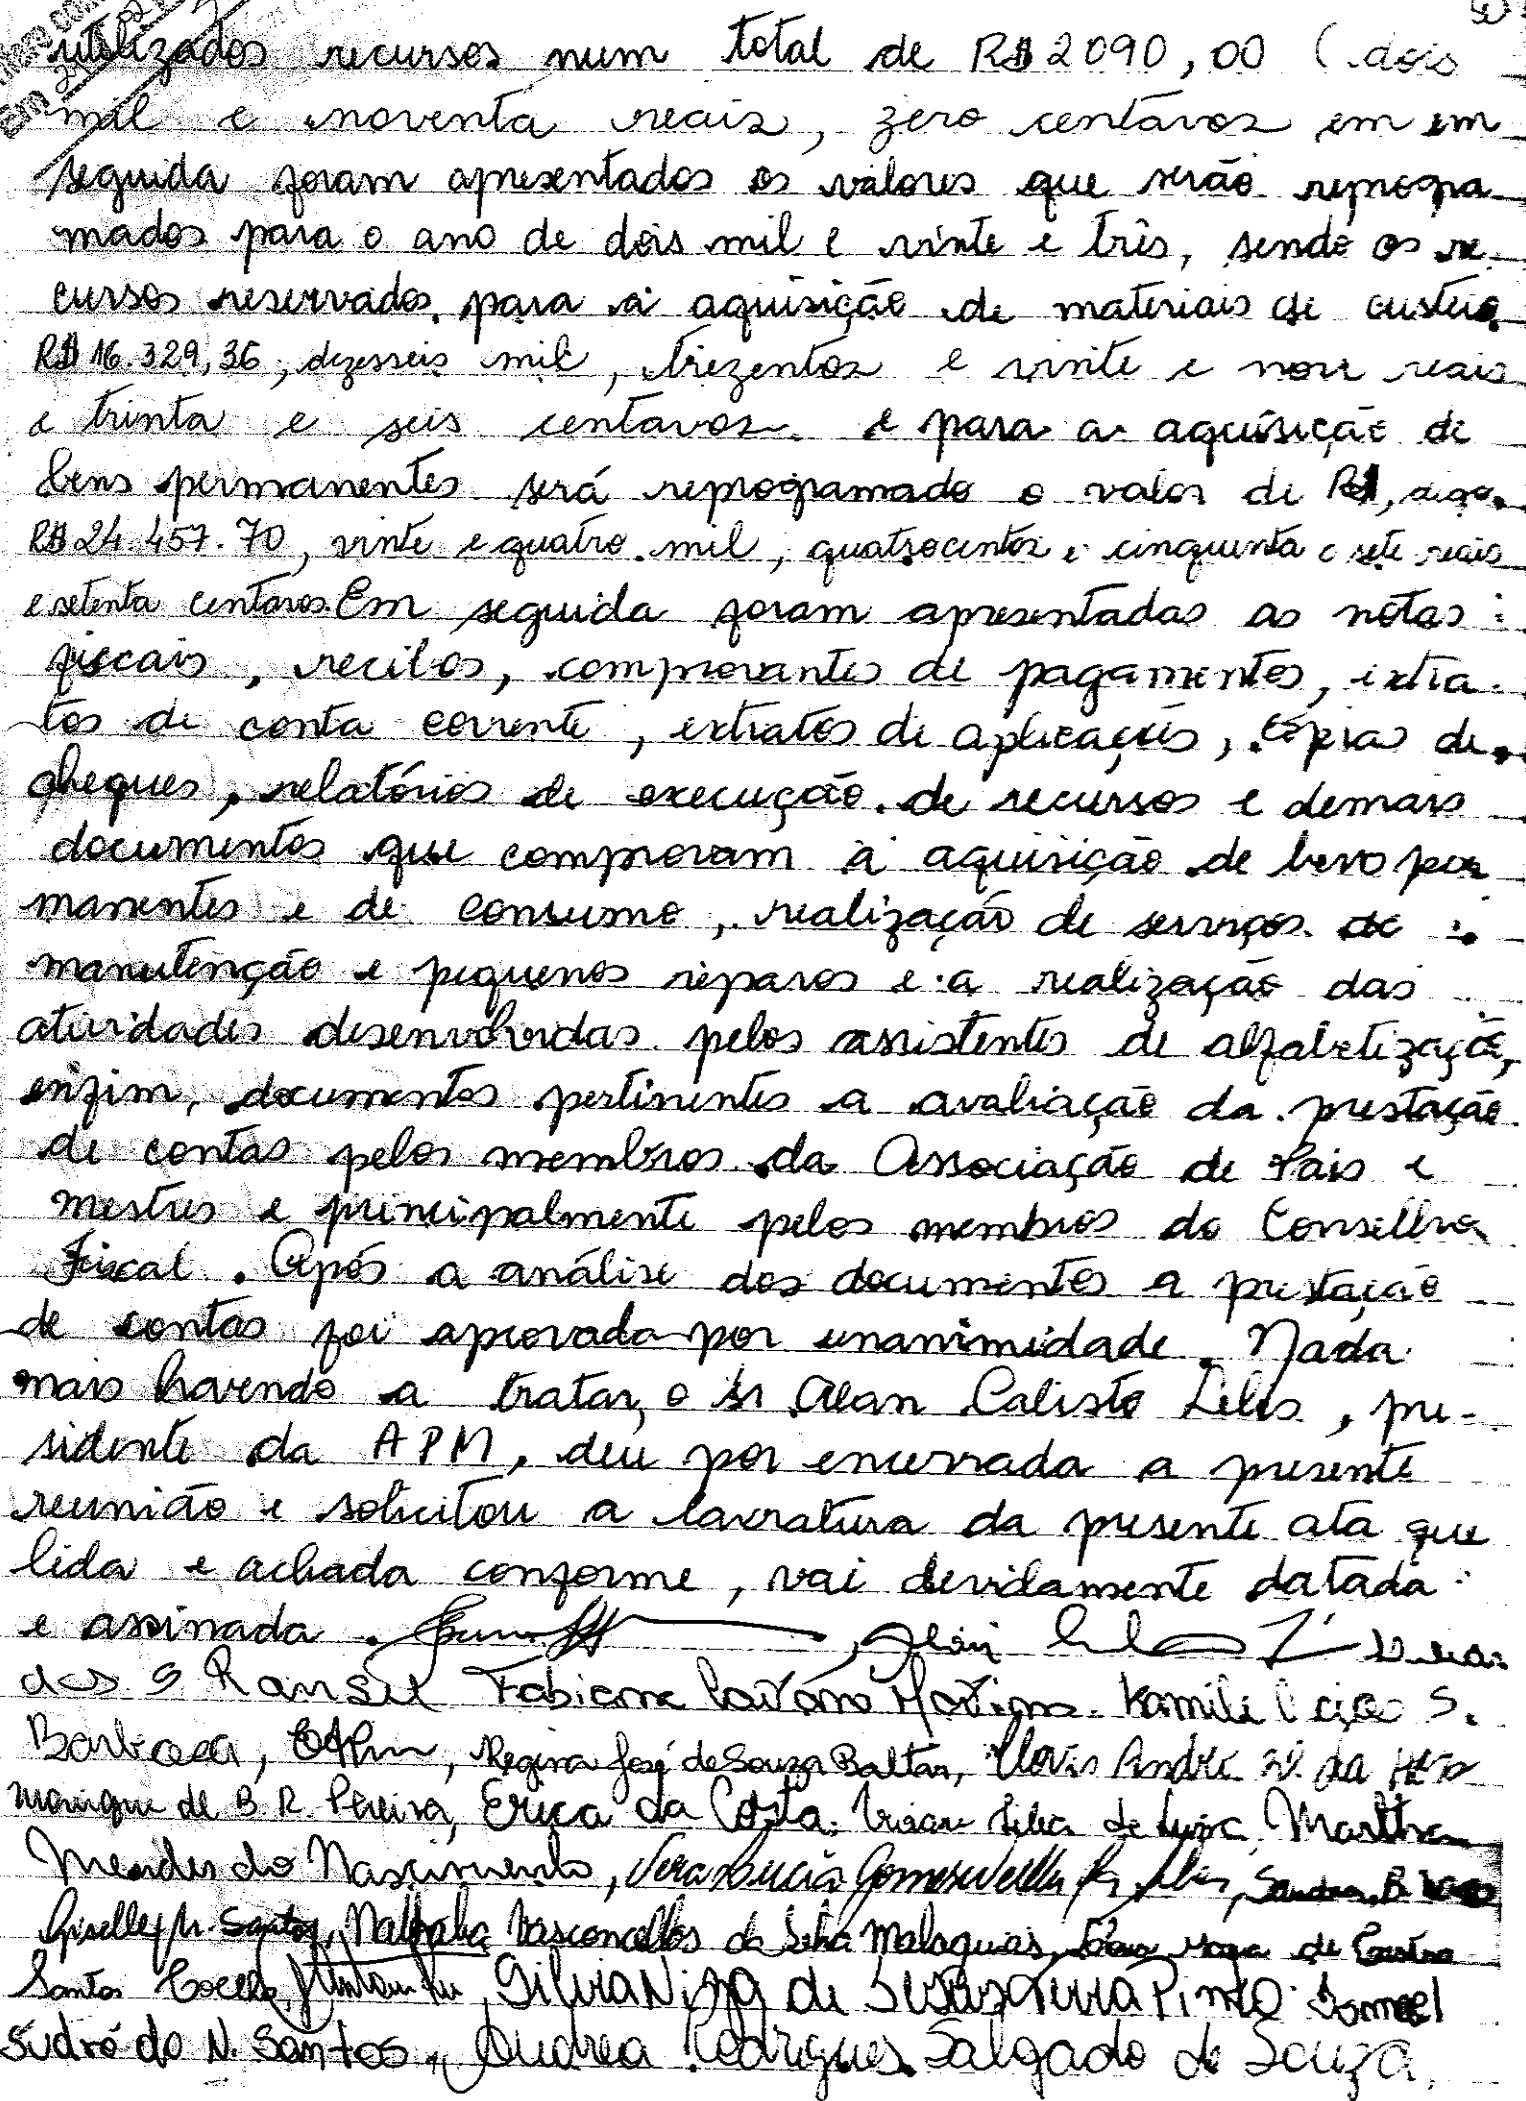 utilizados recursos num total de R$ 2090,00 (dois
mil e noventa reais, zero centavos em em
seguida foram apresentados os valores que serão reprogra
mados para o ano de dois mil e vinte e três, sendo os re
cursos reservados para a aquisição de materiais de custeio
R$ 16.329,36, dezesseis mil, trezentos e vinte e nove reais
e trinta e seis centavos e para a aquisição de
bens permanentes será reprogramado o valor de R$, digo,
R$ 24.457.70, vinte e quatro mil, quatrocentos e cinquenta e sete reais
e setenta centavos. Em seguida foram apresentadas as notas
fiscais, recibos, comprovantes de pagamentos, extra
tos de conta corrente, extratos de aplicações, cópias de
cheques, relatórios de execução de recursos e demais
documentos que comprovam a aquisição de bens per
manentes e de consumo, realização de serviços de
manutenção e pequenos reparos e a realização das
atividades desenvolvidas pelos assistentes de alfabetização,
enfim, documentos pertinentes a avaliação da prestação
de contas pelos membros da Associação de Pais e
mestres e principalmente pelos membros do Conselho
Fiscal. Após a análise dos documentos a prestação
de contas foi aprovada por unanimidade. Nada
mais havendo a tratar, o Sr Alan Calisto Leles, pre-
sidente da APM, deu por encerrada a presente
reunião e solicitou a lavratura da presente ata que
lida e achada conforme, vai devidamente datada
e assinada.
dos S Rangel Fabiana Caetano Martins. Kamila S.
Barbosa, Regina José de Souza Baltar, Clovis André da
Monique de B R. Pereira, Erica da Costa, Viviane Silva de Martha
Mendes do Nascimento, Vera Lucia Gomes Sandra B
Giselle Santos, Nathalia Vasconcellos da Silva Malaquias, de Castro
Santos Coelho, Silvia de Pinto
Sudré do N. Santos, Andrea Rodrigues Salgado de Souza,